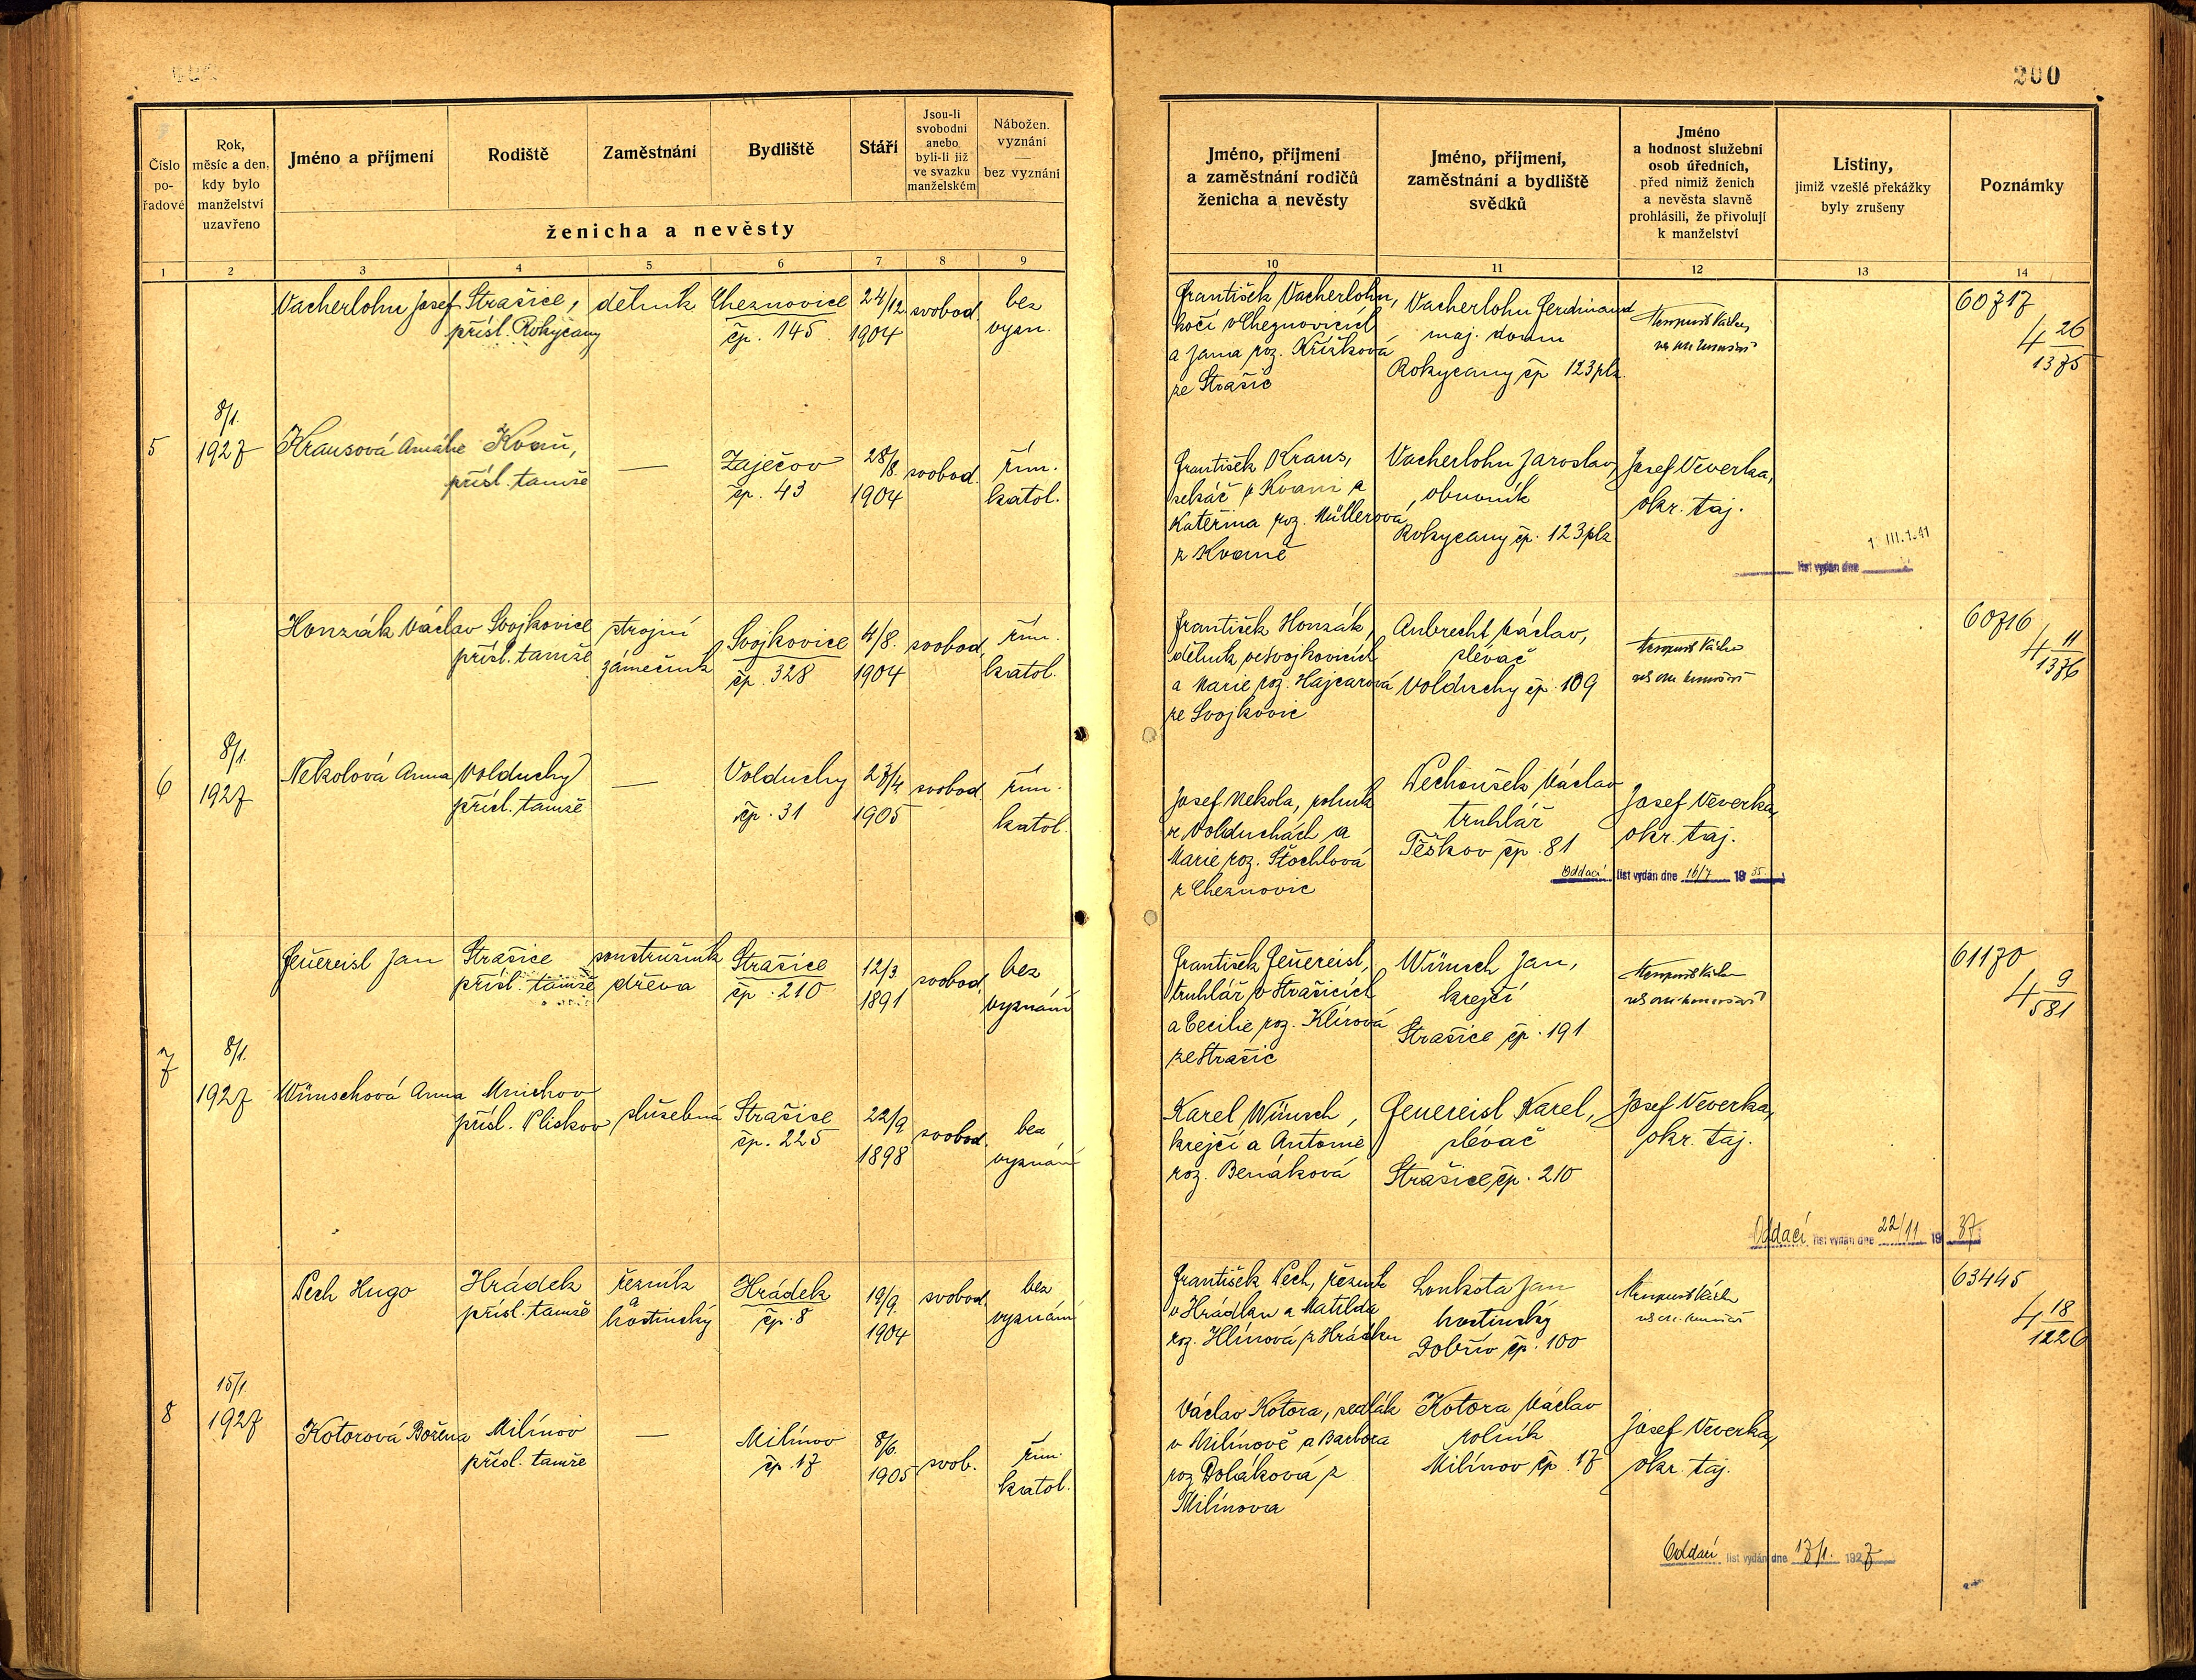 200
Číslo pořadové
Rok, měsíc a den, kdy bylo manželství uzavřeno
Jméno a příjmení
Rodiště
Zaměstnání
Bydliště
Stáří
Jsou-li svobodni anebo byli-li již ve svazku manželském
Nábožen. vyznání — bez vyznání
ženicha a nevěsty
Jméno, příjmení a zaměstnání rodičů ženicha a nevěsty
Jméno, příjmení, zaměstnání a bydliště svědků
Jméno a hodnost služební osob úředních, před nimiž ženich a nevěsta slavně prohlásili, že přivolují k manželství
Listiny, jimiž vzešlé překážky byly zrušeny
Poznámky
1 2 3 4 5 6 7 8 9 10 11 12 13 14
Vacherlohn Josef
Strašice,
přísl. Rokycany
dělník
Cheznovice
čp. 145
24/12.
1904
svobod.
bez
vyzn.
František Vacherlohn,
kočí v Cheznovicích
a Jana roz. Křížková
ze Strašic
Vacherlohn Ferdinand
maj. domu
Rokycany čp 123 plz.
60717
4 26/1375
5
8/1.
1927
Krausová Amálie
Kvaň,
přísl. tamže
—
Zaječov
čp. 43
28/8.
1904
svobod.
řím.
katol.
František Kraus,
sekáč v Kvani a
Kateřina roz. Müllerová
z Kvaně
Vacherlohn Jaroslav,
obuvník
Rokycany čp. 123 plz
Josef Veverka,
okr. taj.
list vydán dne
Honzák Václav
Svojkovice
přísl. tamže
strojní
zámečník
Svojkovice
čp. 328
4/8.
1904
svobod.
řím.
katol.
František Honzák,
dělník ve Svojkovicích
a Marie roz. Hajcarová
ze Svojkovic
Aubrecht Václav,
slévač
Volduchy čp. 109
60716
4 11/1376
6
8/1.
1927
Nekolová Anna
Volduchy
přísl. tamže
—
Volduchy
čp. 31
27/4.
1905
svobod.
řím.
katol.
Josef Nekola, rolník
ve Volduchách a
Marie roz. Štochlová
z Cheznovic
Wechoušek Václav
truhlář
Těškov čp. 81
Josef Veverka,
okr. taj.
Oddací list vydán dne 16/7 19 35.
Feuereisl Jan
Strašice
přísl. tamže
soustružník
dřeva
Strašice
čp. 210
12/3.
1891
svobod.
bez
vyznání
František Feuereisl,
truhlář v Strašicích
a Cecilie roz. Klírová
ze Strašic
Wünsch Jan,
krejčí
Strašice čp. 191
61170
4 9/581
7
8/1.
1927
Wünschová Anna
Mnichov
přísl. Pliskov
služebná
Strašice
čp. 225
22/9.
1898
svobod.
bez
vyznání
Karel Wünsch,
krejčí a Antonie
roz. Benáková
Feuereisl Karel,
slévač
Strašice, čp. 210
Josef Veverka,
okr. taj.
Oddací list vydán dne 22/11 19 37.
Pech Hugo
Hrádek
přísl. tamže
řezník
a
hostinský
Hrádek
čp. 8
19/9.
1904
svobod.
bez
vyznání
František Pech, řezník
v Hrádku a Matilda
roz. Hlínová z Hrádku
Loukota Jan
hostinský
Dobřív čp. 100
63445
4 18/1226
8
15/1.
1927
Kotorová Božena
Milínov
přísl. tamže
—
Milínov
čp. 17
8/6.
1905
svob.
řím.
katol.
Václav Kotora, sedlák
v Milínově a Barbora
roz. Poláková z
Milínova
Kotora Václav
rolník
Milínov čp. 17
Josef Veverka,
okr. taj.
Oddací list vydán dne 17/1. 1927